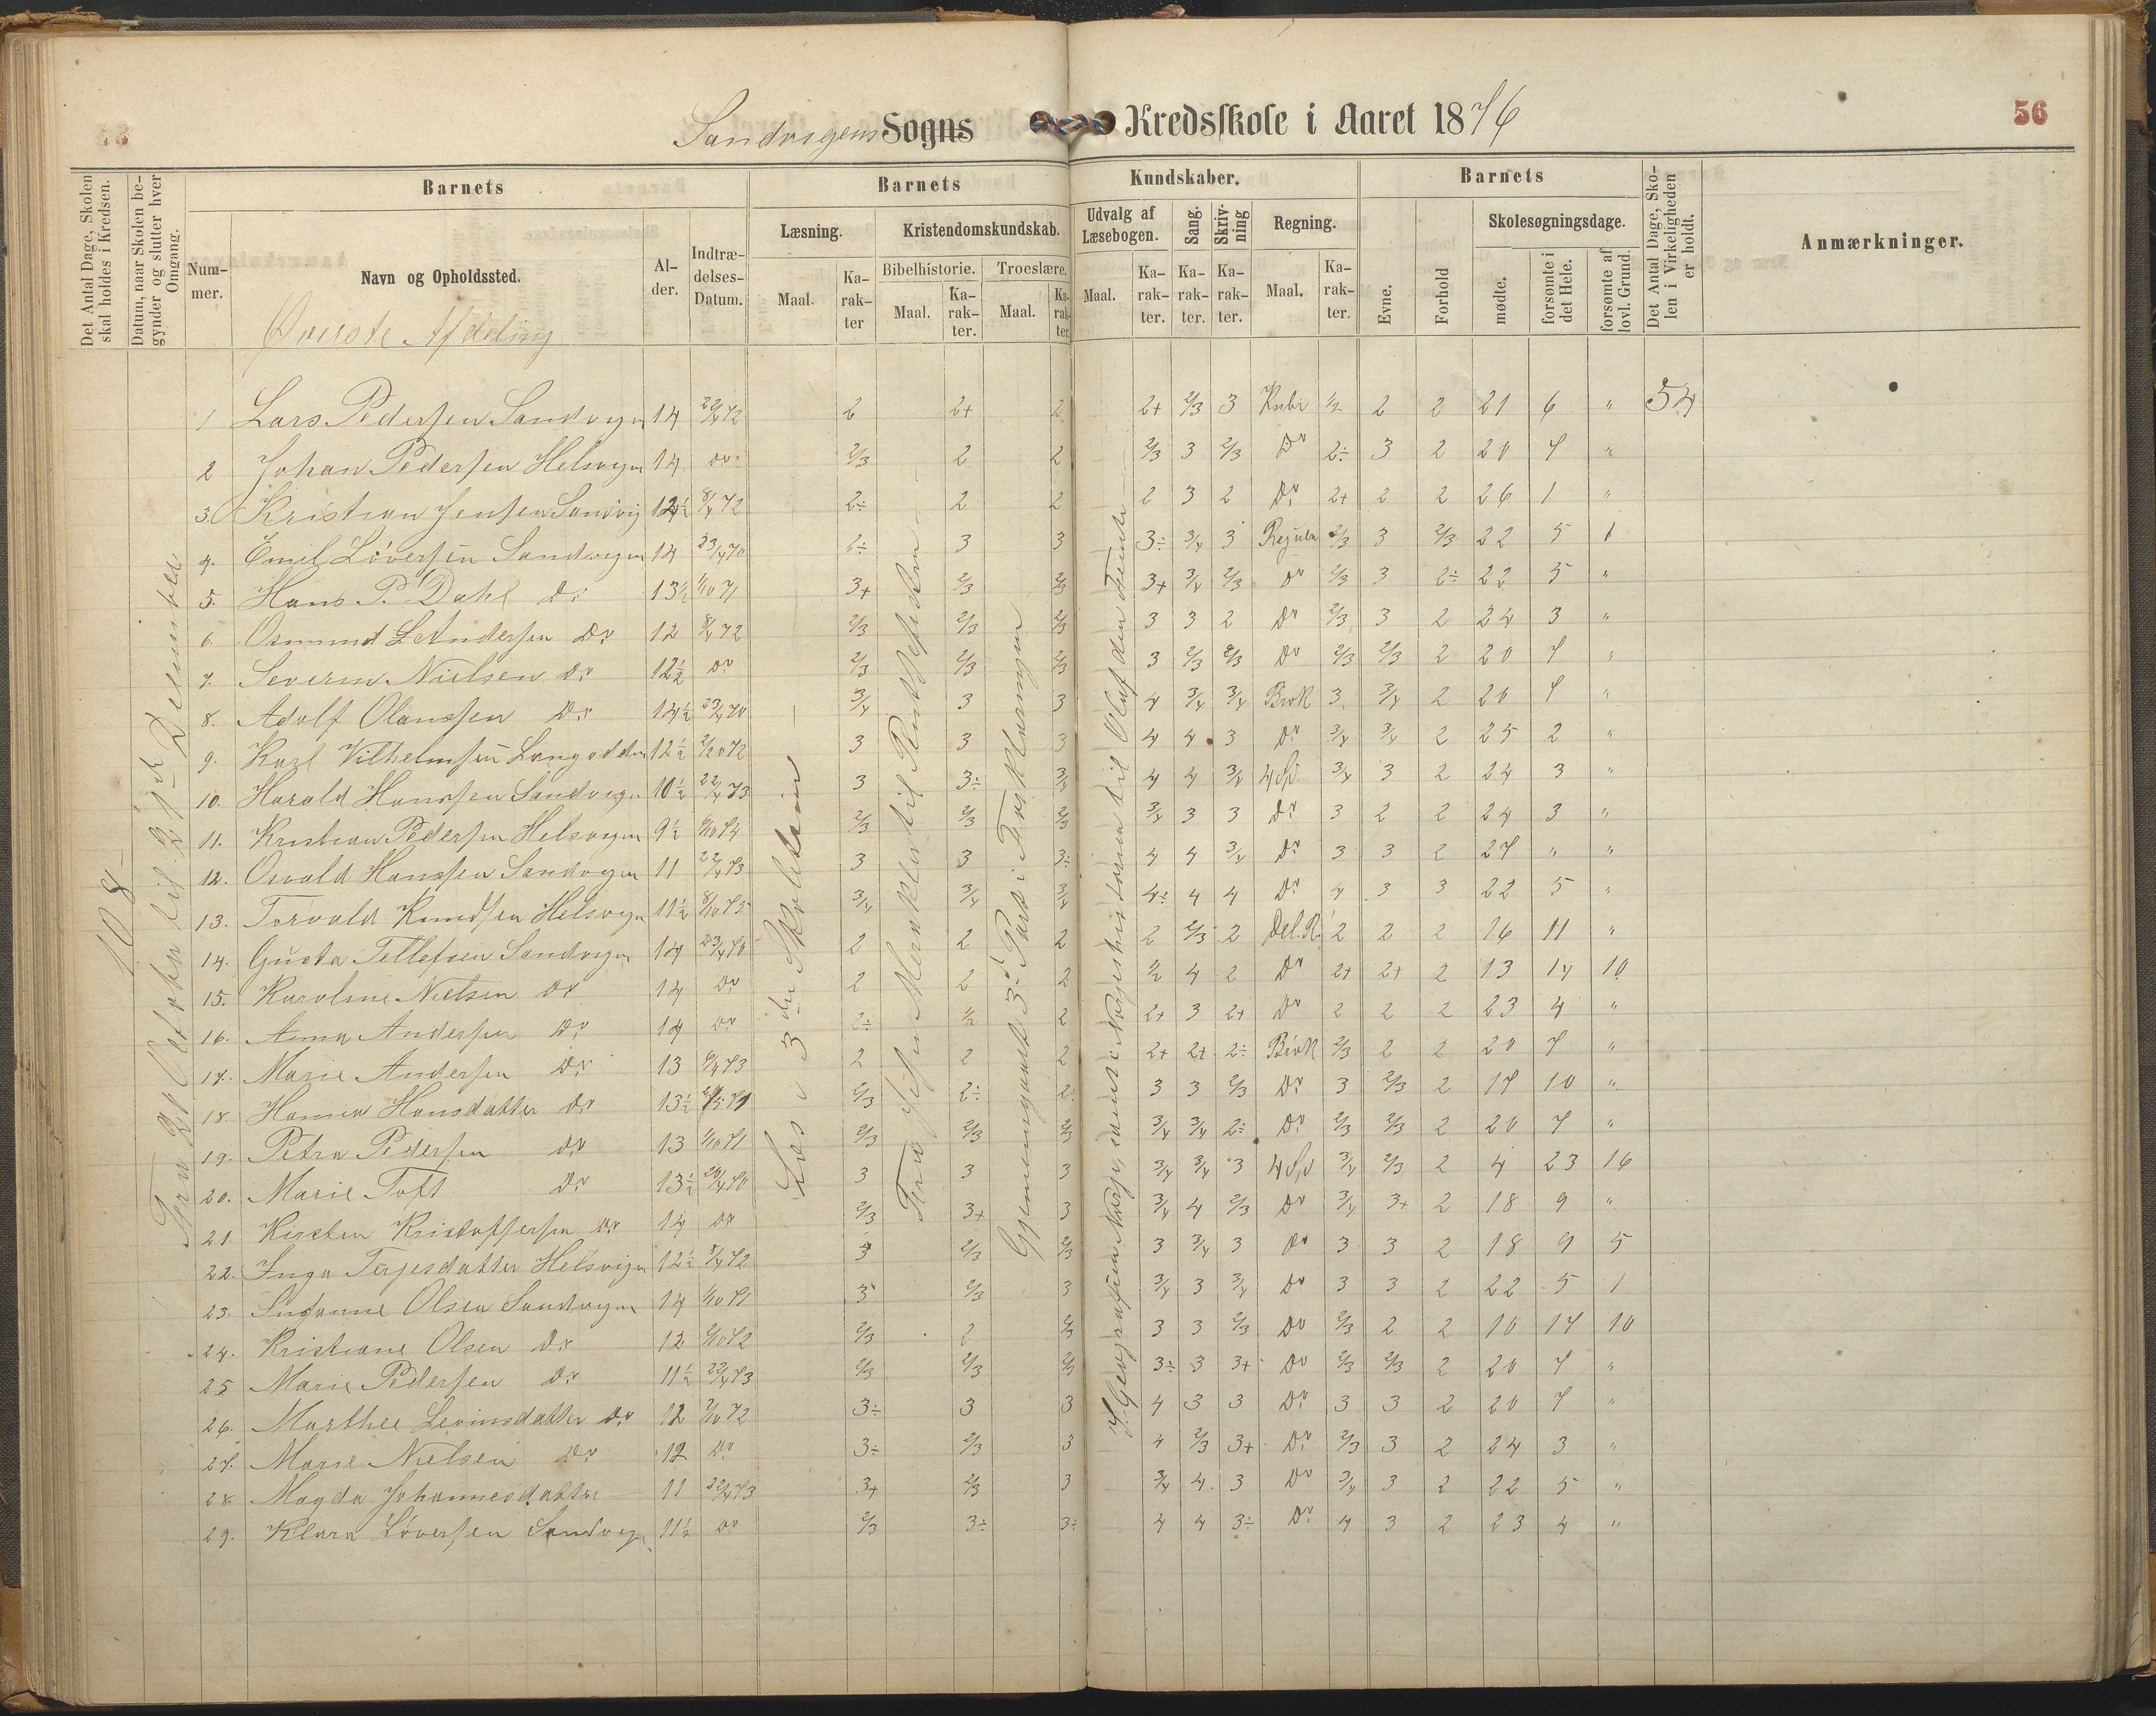 Sandvigens Sogns Kredsskole i Aaret 1876
56
Det Antal Dage, Skolen skal holdes i Kredsen.
Datum, naar Skolen begynder og slutter hver Omgang.
Barnets
Barnets
Kundskaber.
Barnets
Det Antal Dage, Skolen i Virkeligheden er holdt.
Anmærkninger.
Nummer.
Navn og Opholdssted.
Alder.
Indtrædelses-Datum.
Læsning.
Kristendomskundskab.
Udvalg af Læsebogen.
Sang.
Skrivning
Regning.
Evne.
Forhold
Skolesøgningsdage.
Maal.
Karakter
Bibelhistorie.
Troeslære.
Maal.
Karakter.
Maal.
Karakter.
Maal.
Karakter.
Karakter.
Karakter.
Maal.
Karakter.
mødte.
forsømte i det Hele.
forsømte af lovl. Grund.
Øverste Afdeling
108
Fra 31 Oktober til 21de December
Læs i 3die Skoletrin
Gjennemgaaet 3die Part i Forklaringen
1 Lars Pedersen Sandvigen 14 22/4 72 2 2+ 2 2+ 2/3 3 Kubi 1/2 2 2 21 6 " 54
2 Johan Pedersen Helsvigen 14 Do 2/3 2 2 2/3 3 2/3 Do 2÷ 3 2 20 7 "
3. Kristian Jensen Sandvig 12½ 8/4 72 2÷ 2 2 2 3 2 Do 2+ 2 2 26 1 "
4. Emil Løversen Sandvigen 14 23/4 70 2÷ 3 3 3÷ 3/4 3 Regula 2/3 3 2/3 22 5 1
5. Hans P. Dahl Do 13½ 1/10 71 3+ 2/3 2/3 3+ 3/4 2/3 Do 2/3 3 2÷ 22 5 "
6. Osmund L Andersen Do 12 8/4 72 2/3 2/3 2/3 3 3 2 Do 2/3 3 2 24 3 "
7. Severin Nielsen Do 12½ Do 2/3 2/3 2/3 3 2/3 2/3 Do 2/3 2/3 2 20 7 "
8. Adolf Olanssen Do 14½ 23/4 70 3/4 3 3 4 3/4 3/4 Brøk 3 3/4 2 20 7 "
9. Karl Vilhelmsen Langodden 12½ 3 3 3 4 4 3 Do 3/4 3/4 2 25 2 "
10. Harald Hanssen Sandvigen 10½ 22/4 73 3 3÷ 3/4 4 4 3/4 4 Sp 3/4 3 2 24 3 "
11. Kristian Pedersen Helsvigen 9½ 6/10 74 2/3 2/3 2/3 3/4 3 3 Do 3 2 2 24 3 "
12. Osvald Hanssen Sandvigen 11 22/4 73 3 3 3÷ 4 4 3/4 Do 3 3 2 27 " "
13. Torvald Knudsen Helsvigen 11½ 8/10 73 3/4 3/4 3/4 4÷ 4 4 Do 4 3 3 22 5 "
14. Gusta Tellefsen Sandvigen 14 23/4 70 2 2 2 2 2/3 2 Del.R. 2 2 2 16 11 "
15. Karoline Nielsen Do 14 Do 2 2 2 1/2 4 2 Do 2+ 2+ 2 13 14 10
16. Anna Andersen Do 14 Do 2÷ 1/2 2 2+ 3 2+ Do 2 2 2 23 4 "
17. Marie Andersen Do 13 6/4 73 2 2 2 2+ 2+ 2÷ Brøk 2/3 2 2 20 7 "
18. Hanna Hansdatter Do 13½ 2/3 2÷ 2÷ 3 3 2/3 Do 3 2/3 2 17 10 "
19. Petra Pedersen Do 13 1/10 71 2/3 2/3 2/3 3/4 3/4 2÷ Do 2/3 2/3 2 20 7 "
20. Marie Toft Do 13½ 26/4 70 3 3 3 3/4 3/4 3 4 Sp 3/4 2/3 2 4 23 16
21. Kirsten Kristoffersen Do 14 Do 2/3 3+ 3 3/4 4 2/3 Do 3/4 3+ 2 18 9 "
22. Inga Terjesdatter Helsvigen 12½ 8/4 72 3 2/3 2/3 3 3/4 3 Do 3 3 2 18 9 5
23. Susanne Olsen Sandvigen 14 1/10 71 3 2/3 3 3/4 3 3/4 Do 3 3 2 22 5 1
24. Kristiane Olsen Do 12 2/10 72 2/3 2 2/3 3 3 2/3 Do 2/3 2 2 10 17 10
25 Marie Pedersen Do 11½ 22/4 73 2/3 2/3 2/3 3÷ 3 3+ Do 2/3 2/3 2 20 7 "
26. Marthee Levinsdatter Do 12 2/10 72 3÷ 3 3 4 3 3 Do 3 3 2 20 7 "
27. Marie Nielsen Do 12 Do 3÷ 2/3 3 4 2/3 3+ Do 2/3 3 2 24 3 "
28 Magda Johannesdatter 11 22/4 73 3+ 2/3 3 3/4 4 3 Do 3/4 3 2 22 5 "
29. Klara Løversen Sandvigen 11½ Do 2/3 3÷ 3÷ 4 4 3÷ Do 4 3 2 23 4 "